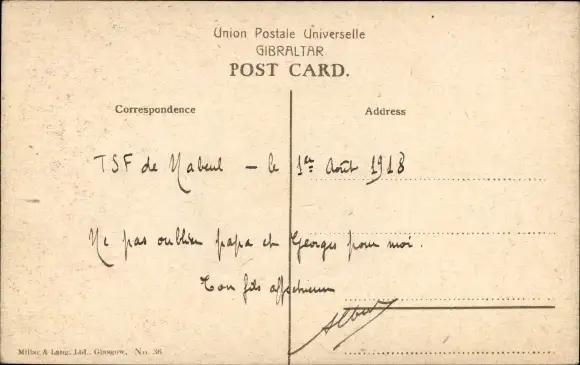 Union Postale Universelle
GIBRALTAR
POST CARD.
Correspondence
Address
TSF de Nabeul – le 1er Août 1918
Ne pas oublier papa et Georges pour moi.
Ton fils affectueux
Albert
Millar & Lang, Ltd., Glasgow, No. 36